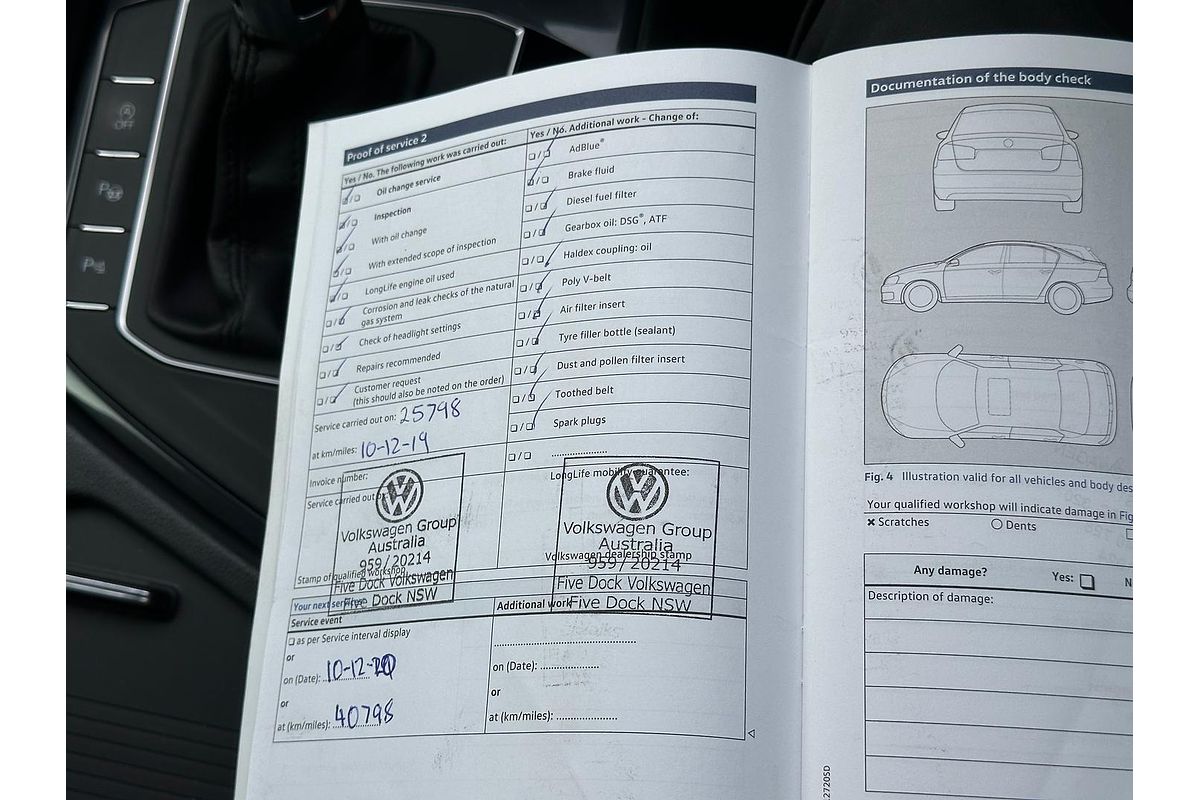 OFF
P
P
Proof of service 2
Yes / No. The following work was carried out:
Oil change service
Inspection
With oil change
With extended scope of inspection
LongLife engine oil used
Corrosion and leak checks of the natural
gas system
Check of headlight settings
Repairs recommended
Customer request
(this should also be noted on the order)
Service carried out on: 25798
at km/miles: 10-12-19
Invoice number:
Service carried out by:
Volkswagen Group
Australia
959/20214
Stamp of qualified workshop
Five Dock Volkswagen
Five Dock NSW
Yes / No. Additional work – Change of:
AdBlue®
Brake fluid
Diesel fuel filter
Gearbox oil: DSG®, ATF
Haldex coupling: oil
Poly V-belt
Air filter insert
Tyre filler bottle (sealant)
Dust and pollen filter insert
Toothed belt
Spark plugs
LongLife mobility guarantee:
Volkswagen Group
Australia
Volkswagen dealership stamp
959/20214
Five Dock Volkswagen
Five Dock NSW
Your next service:
Service event
as per Service interval display
or
on (Date): 10-12-20
or
at (km/miles): 40798
Additional work
on (Date):
or
at (km/miles):
Documentation of the body check
Fig. 4 Illustration valid for all vehicles and body des
Your qualified workshop will indicate damage in Fig
Scratches
Dents
Any damage?
Yes:
N
Description of damage:
.2720SD